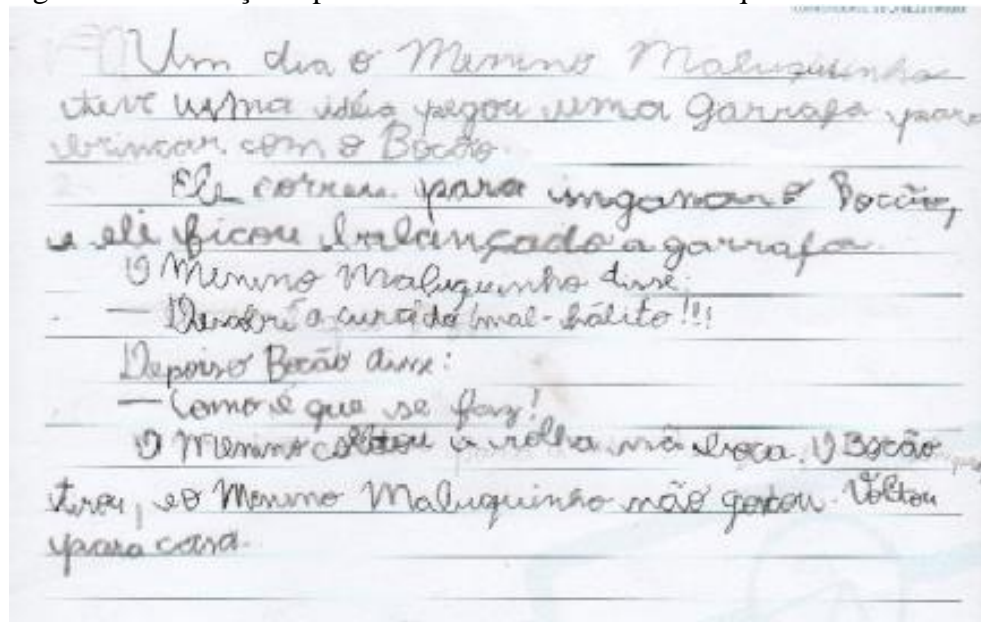 Um dia o Menino Maluquinho
teve uma idéia pegou uma garrafa para
brincar com o Bocão.
Ele correu para inganar o Bocão,
e ele ficou balançado a garrafa.
O Menino Maluquinho disse:
— Descobri a cura do mal-hálito!!!
Depois o Bocão disse:
— Como é que se faz!
O Menino colocou a rolha na boca. O Bocão
tirou, e o Menino Maluquinho não gostou. Voltou
para casa.